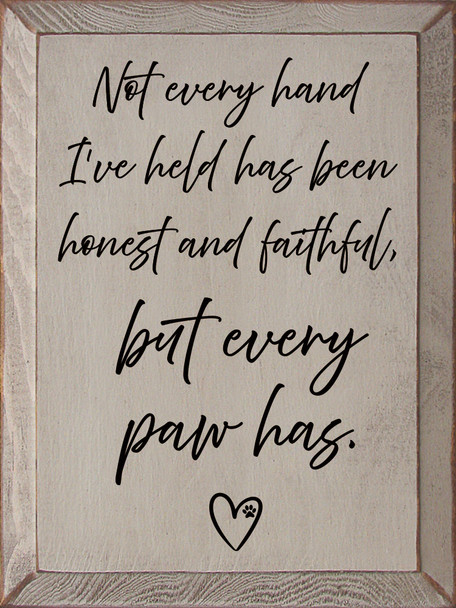 Not every hand
I've held has been
honest and faithful,
but every
paw has.